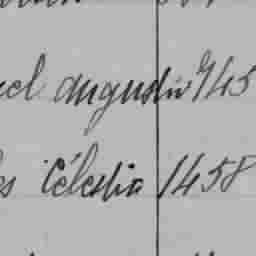 el Augustin 945
es Célestia 1458